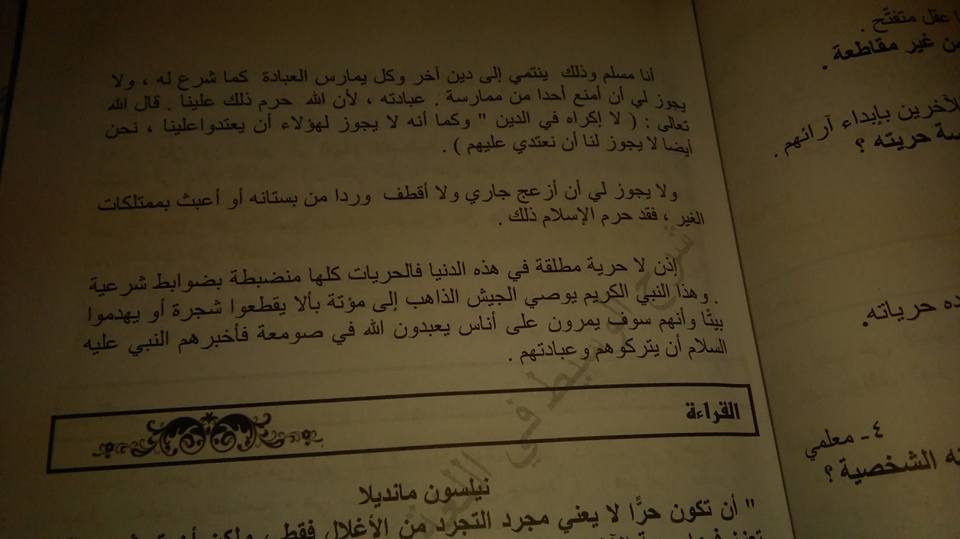 أنا مسلم وذلك ينتمي إلى دين آخر وكل يمارس العبادة كما شرع له ، ولا
يجوز لي أن أمنع أحدا من ممارسة . عبادته ، لأن الله حرم ذلك علينا . قال الله
تعالى : ( لا إكراه في الدين " وكما أنه لا يجوز لهؤلاء أن يعتدواعلينا ، نحن
أيضا لا يجوز لنا أن نعتدي عليهم ) .
ولا يجوز لي أن أزعج جاري ولا أقطف وردا من بستانه أو أعبث بممتلكات
الغير ، فقد حرم الإسلام ذلك .
إذن لا حرية مطلقة في هذه الدنيا فالحريات كلها منضبطة بضوابط شرعية
. وهذا النبي الكريم يوصي الجيش الذاهب إلى مؤتة بألا يقطعوا شجرة أو يهدموا
بيتًا وأنهم سوف يمرون على أناس يعبدون الله في صومعة فأخبرهم النبي عليه
السلام أن يتركوهم وعبادتهم .
القراءة
نيلسون مانديلا
" أن تكون حرًّا لا يعني مجرد التجرد من الأغلال فقط ، ولكن أن
عقل متفتح .
من غير مقاطعة .
للآخرين بإبداء آرائهم .
حريته ؟
حرياته.
٤- معلمي
الشخصية ؟